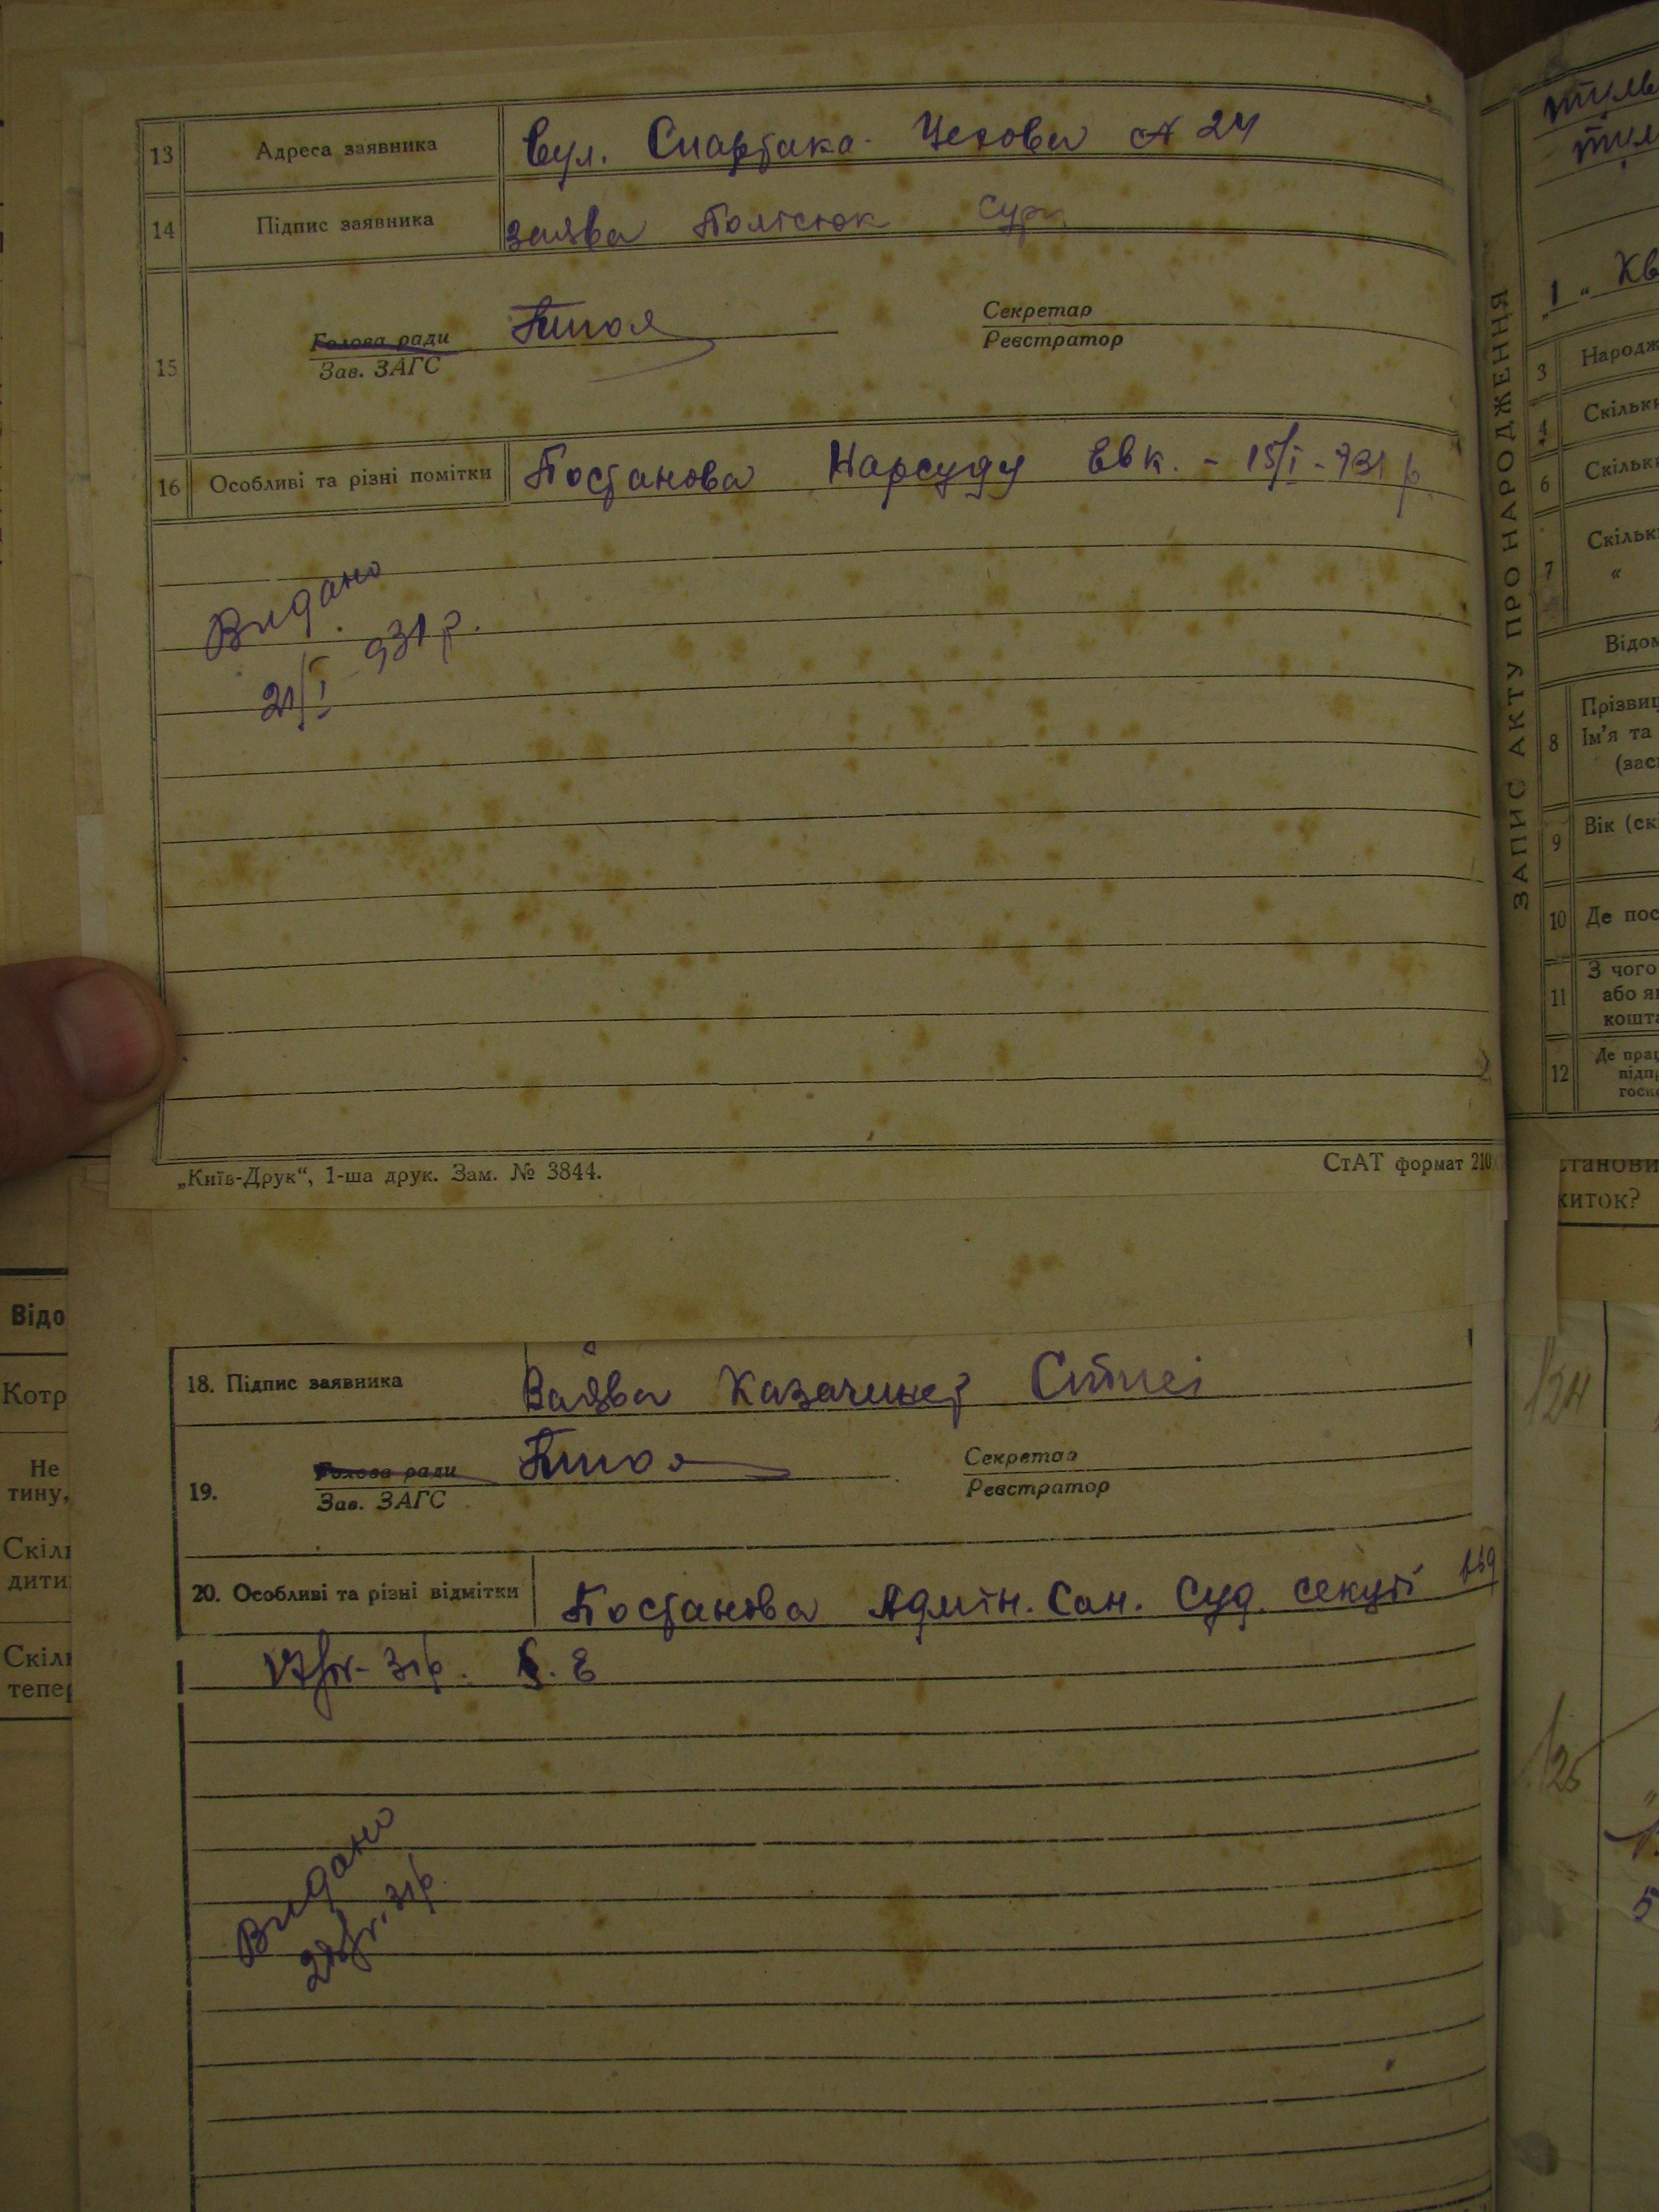 13 Адреса заявника Вул. Спартака - Чехова № 24
14 Підпис заявника заява Полісюк Сур
15 Голова ради Зав. ЗАГС Секретар Реєстратор
16 Особливі та різні помітки Постанова Нарсуду Євк. - 15/I - 931 р.
Видано
21/I 931 р.
„Київ-Друк“, 1-ша друк. Зам. № 3844. СтАТ формат 210
18. Підпис заявника Заява
19. Голова ради Зав. ЗАГС Секретар Реєстратор
20. Особливі та різні відмітки Постанова Адмін. Сан. Суд. секції
31 р.
Видано
31 р.
Відо
Котр
Не
тину,
Скіль
дити
Скіль
тепер
ЗАПИС АКТУ ПРО НАРОДЖЕННЯ
1 „ Кв
3 Народж
4 Скільки
6 Скільки
7 Скільк
«
Відом
8 Прізвищ
Ім'я та
(зас
9 Вік (ск
10 Де пос
11 З чого
або як
кошта
12 Де прац
підп
госп
станови
житок?
124
125